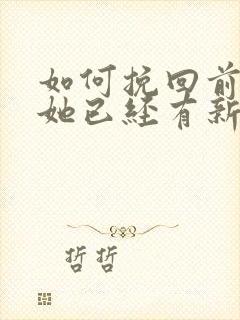 如何挽回前
她已经有新
哲哲